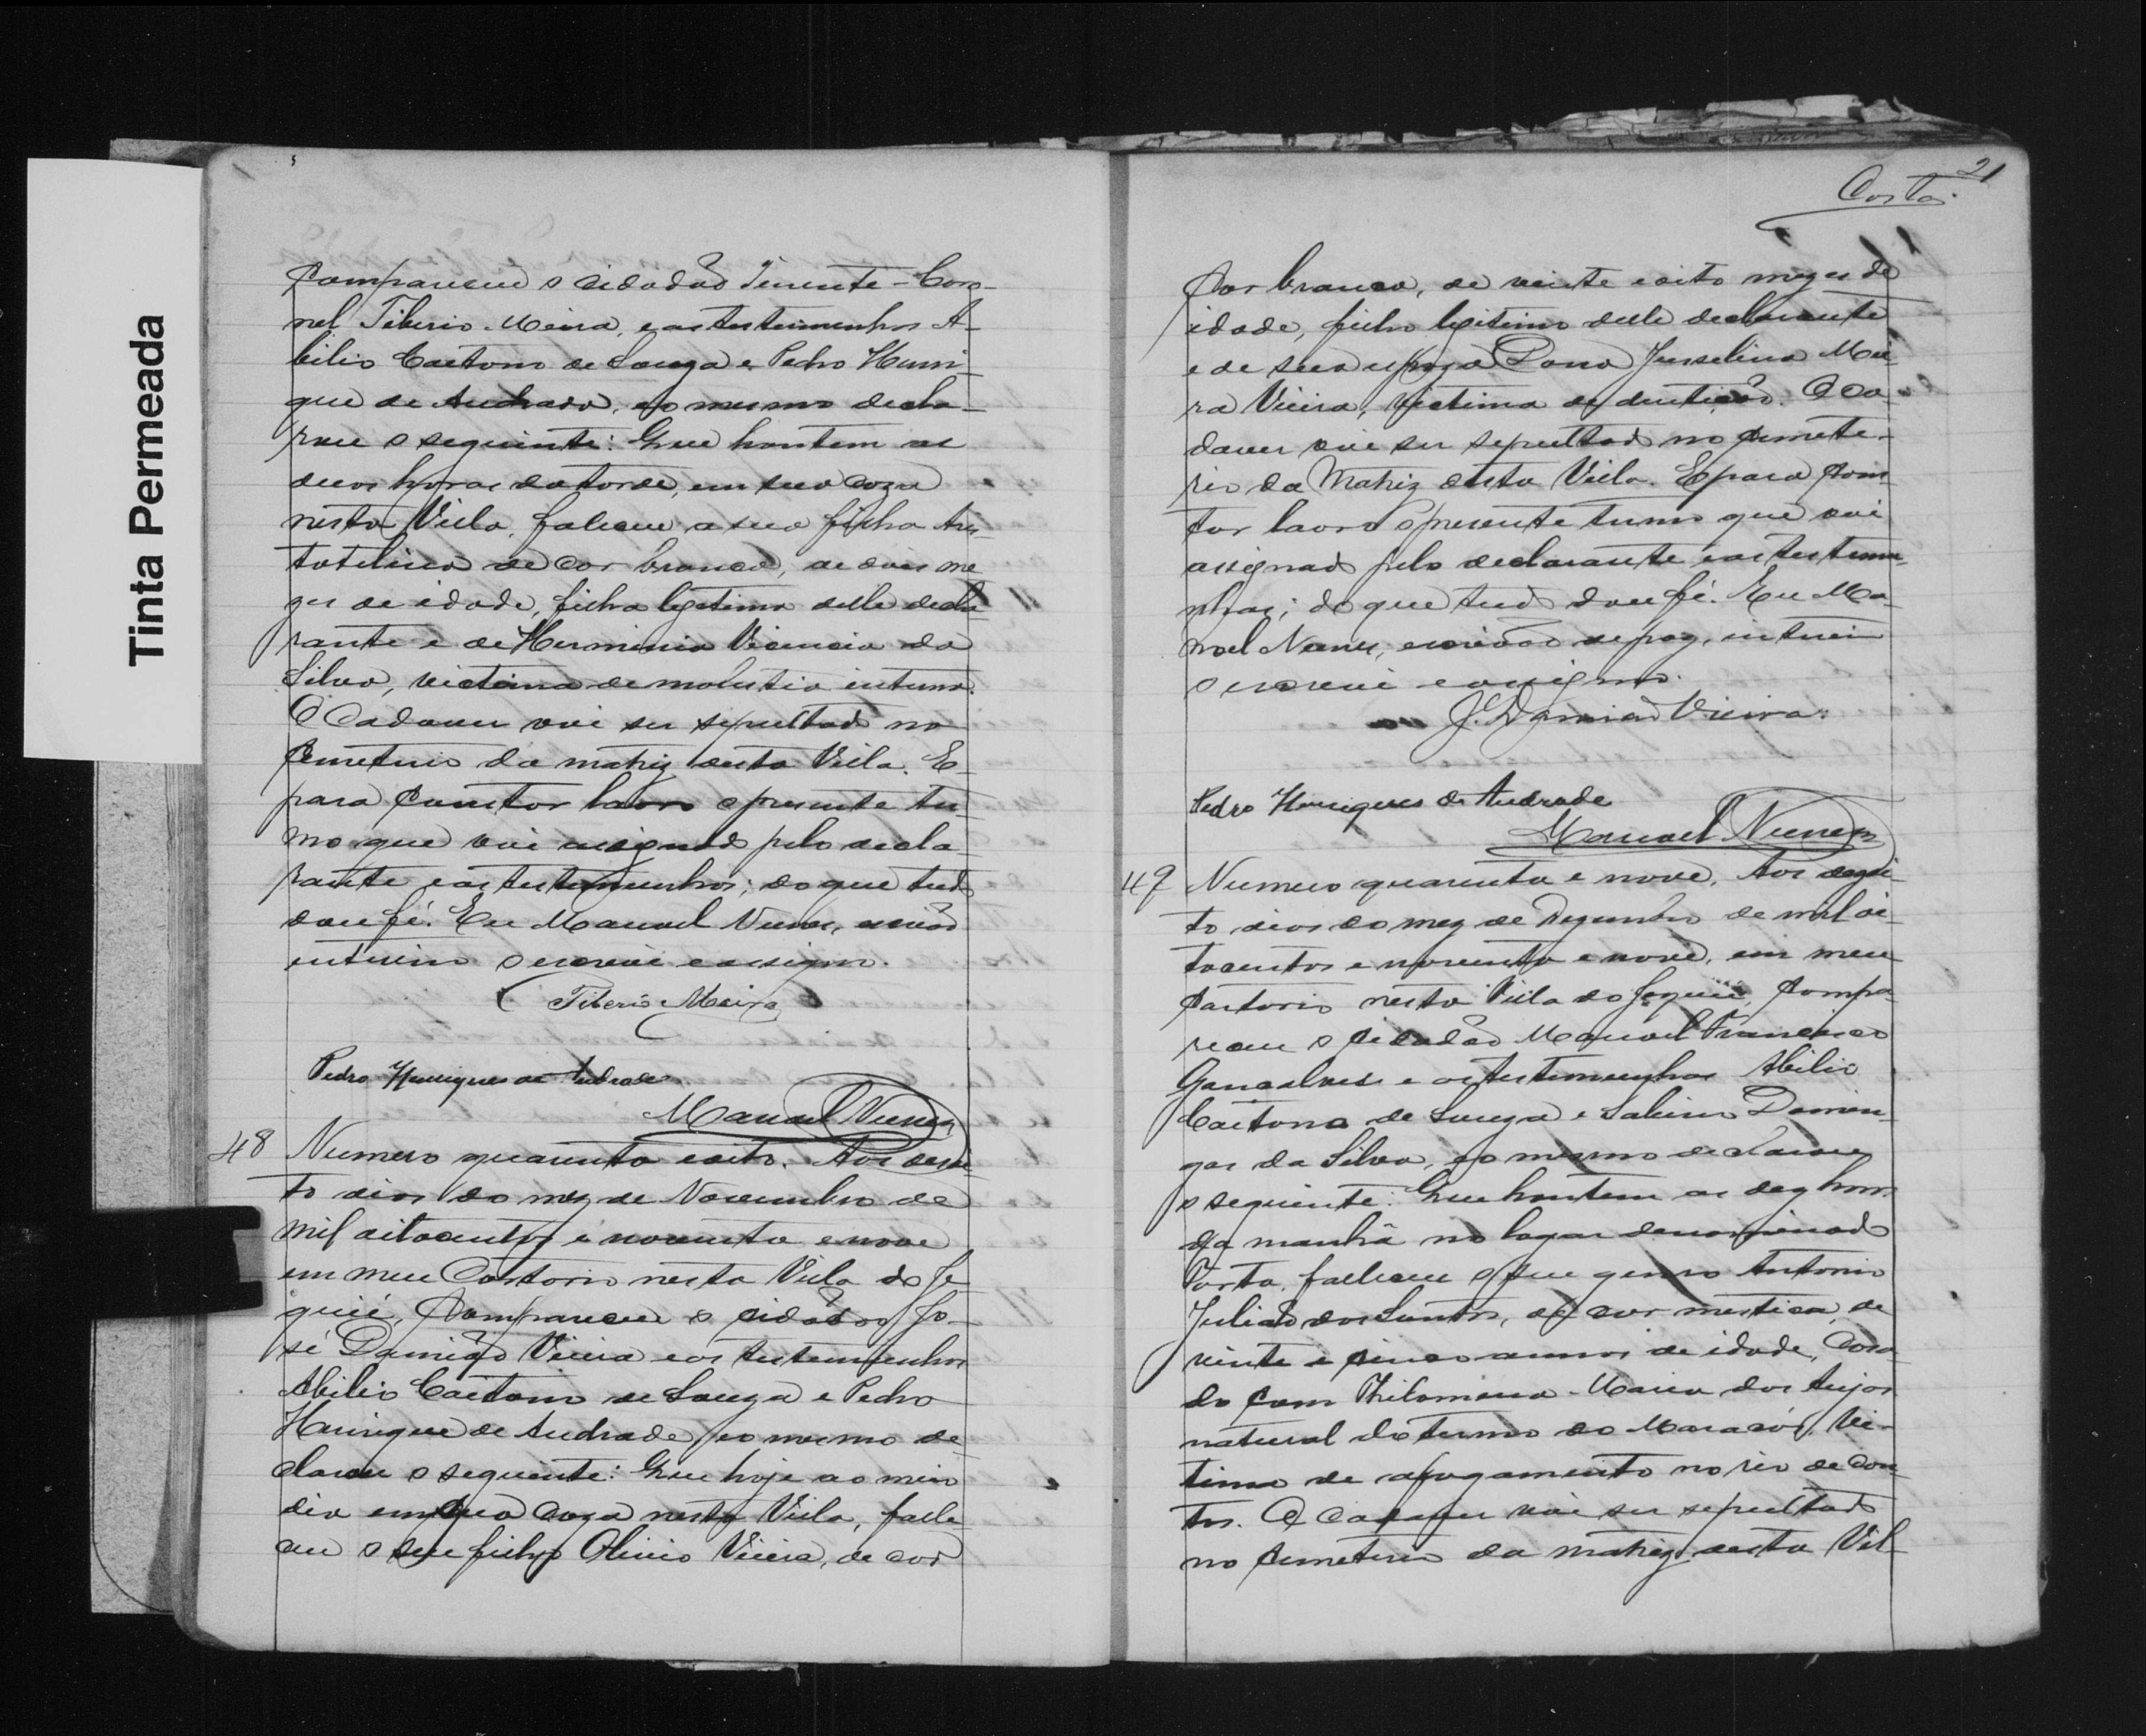 Tinta Permeada
Compareceu o cidadão Tenente-Coro-
nel Tiberio Meira, e as testimunhas A-
bilio Caetano de Souza e Pedro Henri-
que de Andrade, e o mesmo decla-
rou o seguinte: Que hontem as
duas horas da tarde, em sua caza
nesta Villa, faleceu a sua filha Aris-
totelina de cor branca, de dois me
zes de idade, filha legitima delle decla
rante e de Herminia Vicencia da
Silva, victima de molestia interna.
O Cadaver vai ser sepultado no
Cemeterio da matriz desta Villa. E
para constar lavro o presente ter-
mo que vai assignado pelo decla-
rante e as testemunhas; do que tudo
dou fé. Eu Manoel Nunes, escrivão
interino o escrevi e assigno.
Tiberio Meira
Pedro Henriques de Andrade
Manoel Nunes
48 Numero quarenta e oito. Aos desoi
to dias do mez de Novembro de
mil oitocentos e noventa e nove
em meu Cartorio nesta Villa do Je-
quié, Compareceu o cidadão Jo-
sé Damião Vieira e as testemunhas
Abilio Caetano de Souza e Pedro
Henrique de Andrade, e o mesmo de-
clarou o seguinte: Que hoje ao meio
dia em sua caza nesta Villa, falle-
ceu o seu filho Olivio Vieira, de cor
21
Costa.
Cor branca, de vinte e oito mezes de
idade, filho legitimo delle declarante
e de sua espoza Dona Jesselina Mei-
ra Vieira, victima de dentição. O Ca-
daver vai ser sepultado no Cemete-
rio da Matriz desta Villa. E para Cons-
tar lavro o presente termo que vai
assignado pelo declarante e as testemu-
nhas; do que tudo dou fé. Eu Ma-
noel Nunes, escrivão de paz, interin
o escrevi e assigno.
J. Damião Vieira.
Pedro Henriques de Andrade
Manoel Nunes
49 Numero quarenta e nove. Aos dezoi-
to dias do mez de Dezembro de mil oi-
tocentos e noventa e nove, em meu
Cartorio nesta Villa do Jequié, Compa-
receu o cidadão Manoel Francisco
Gonçalves e as testemunhas Abilio
Caetano de Souza e Sabino Domin-
gos da Silva, e o mesmo declarou
o seguinte: Que hontem as dez horas
da manhã no lugar denominado
Porto, falleceu o seu genro Antonio
Julião dos Santos, de cor mestiça, de
vinte e cinco annos de idade, Casa-
do com Philomena Maria dos Anjos
natural do termo do Maracás, Vic-
tima de afogamento no rio de Con-
tas. O Cadaver vai ser sepultado
no Cemeterio da matriz desta Vil-